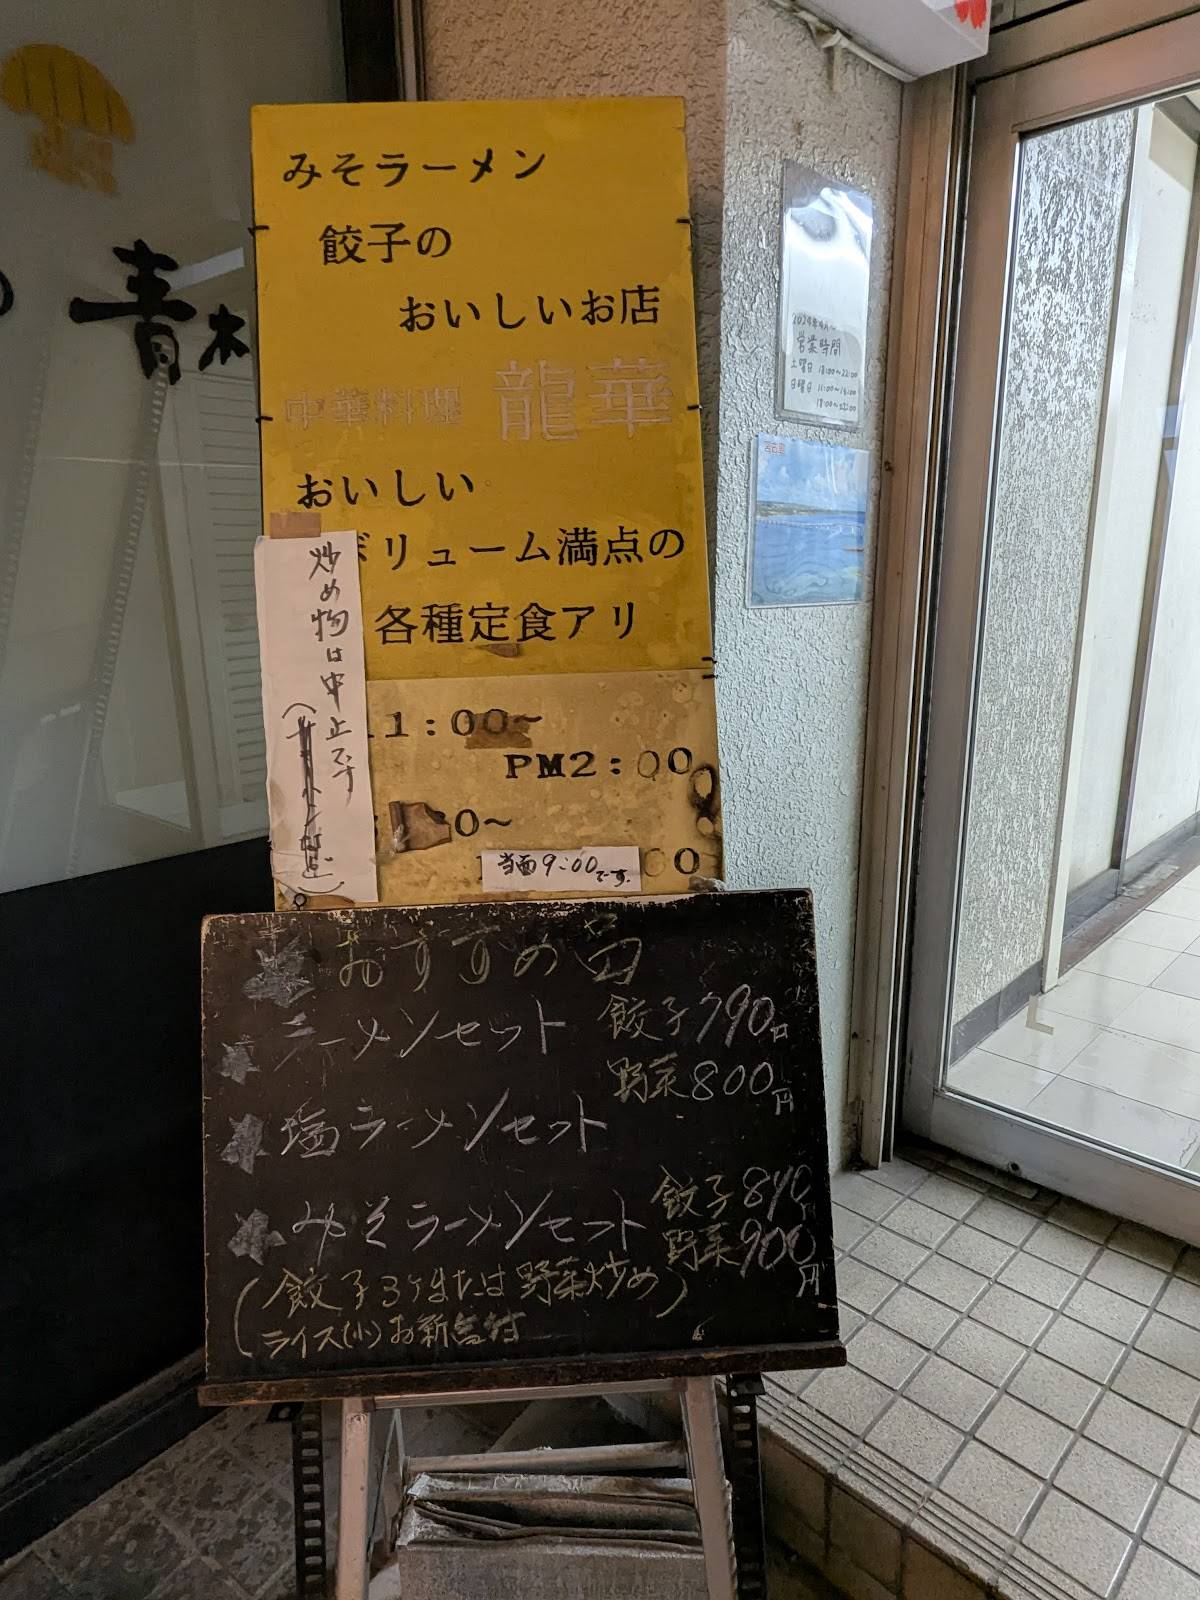 みそラーメン
餃子の
おいしいお店
中華料理 龍華
おいしい
ボリューム満点の
各種定食アリ
11:00~
PM2:00
00~
当面9:00です。
00
炒め物は中止です
青木
2024年4月
営業時間
土曜日 18:00~22:00
日曜日 11:00~14:00
18:00~22:00
宮古島
おすすめ品
ラーメンセット 餃子790円
野菜800円
塩ラーメンセット
みそラーメンセット 餃子890円
野菜900円
(餃子3ケまたは野菜炒め)
ライス(小)お新香付